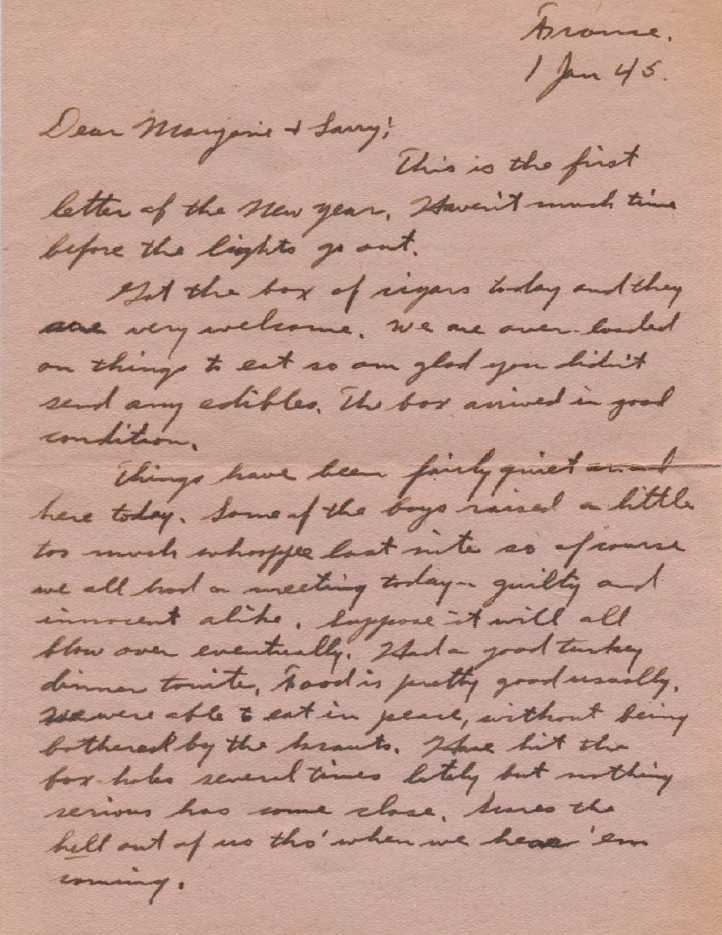 France.
1 Jan 45.
Dear Marjorie & Larry;
This is the first
letter of the New Year. Haven't much time
before the lights go out.
Got the box of cigars today and they
are very welcome. We are over-loaded
on things to eat so am glad you didn't
send any edibles. The box arrived in good
condition.
Things have been fairly quiet around
here today. Some of the boys raised a little
too much whooppee last nite so of course
we all had a meeting today - guilty and
innocent alike. Suppose it will all
blow over eventually. Had a good turkey
dinner tonite. Food is pretty good usually.
We were able to eat in peace, without being
bothered by the krauts. Have hit the
fox-holes several times lately but nothing
serious has come close. Scares the
hell out of us tho' when we hear 'em
coming.